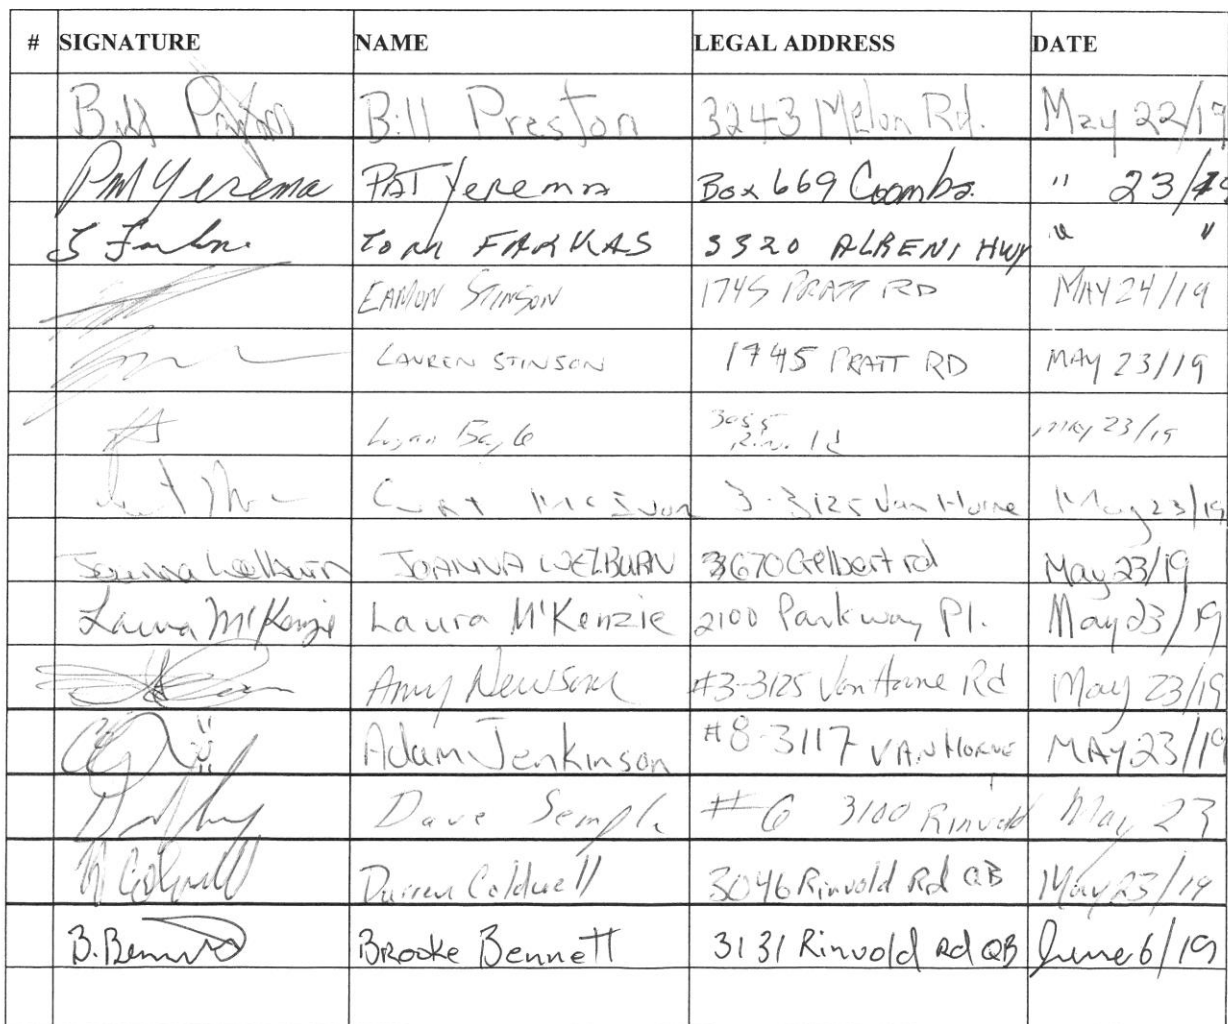 # SIGNATURE NAME LEGAL ADDRESS DATE
Bill Preston Bill Preston 3243 Melon Rd. May 22/19
Pat Yerema PAT Yerema Box 669 Coombs. " 23/19
T Farkas TOM FARKAS 3320 ALBENI HWY " "
EAMON STINSON 1745 PRATT RD MAY 24/19
LAUREN STINSON 1745 PRATT RD MAY 23/19
3055
May 23/19
Curt McEvon 3-3125 Van Horne May 23/19
Joanna Welburn JOANNA WELBURN 3670 Gelbert rd May 23/19
Laura McKenzie Laura McKenzie 2100 Parkway Pl. May 23/19
Amy Newsome #3-3125 Van Horne Rd May 23/19
Adam Jenkinson #8-3117 VAN HORNE MAY 23/19
Dave Semple #6 3100 Rinvold May 23
Darren Coldwell 3046 Rinvold Rd QB May 23/19
B. Bennett Brooke Bennett 3131 Rinvold Rd QB June 6/19